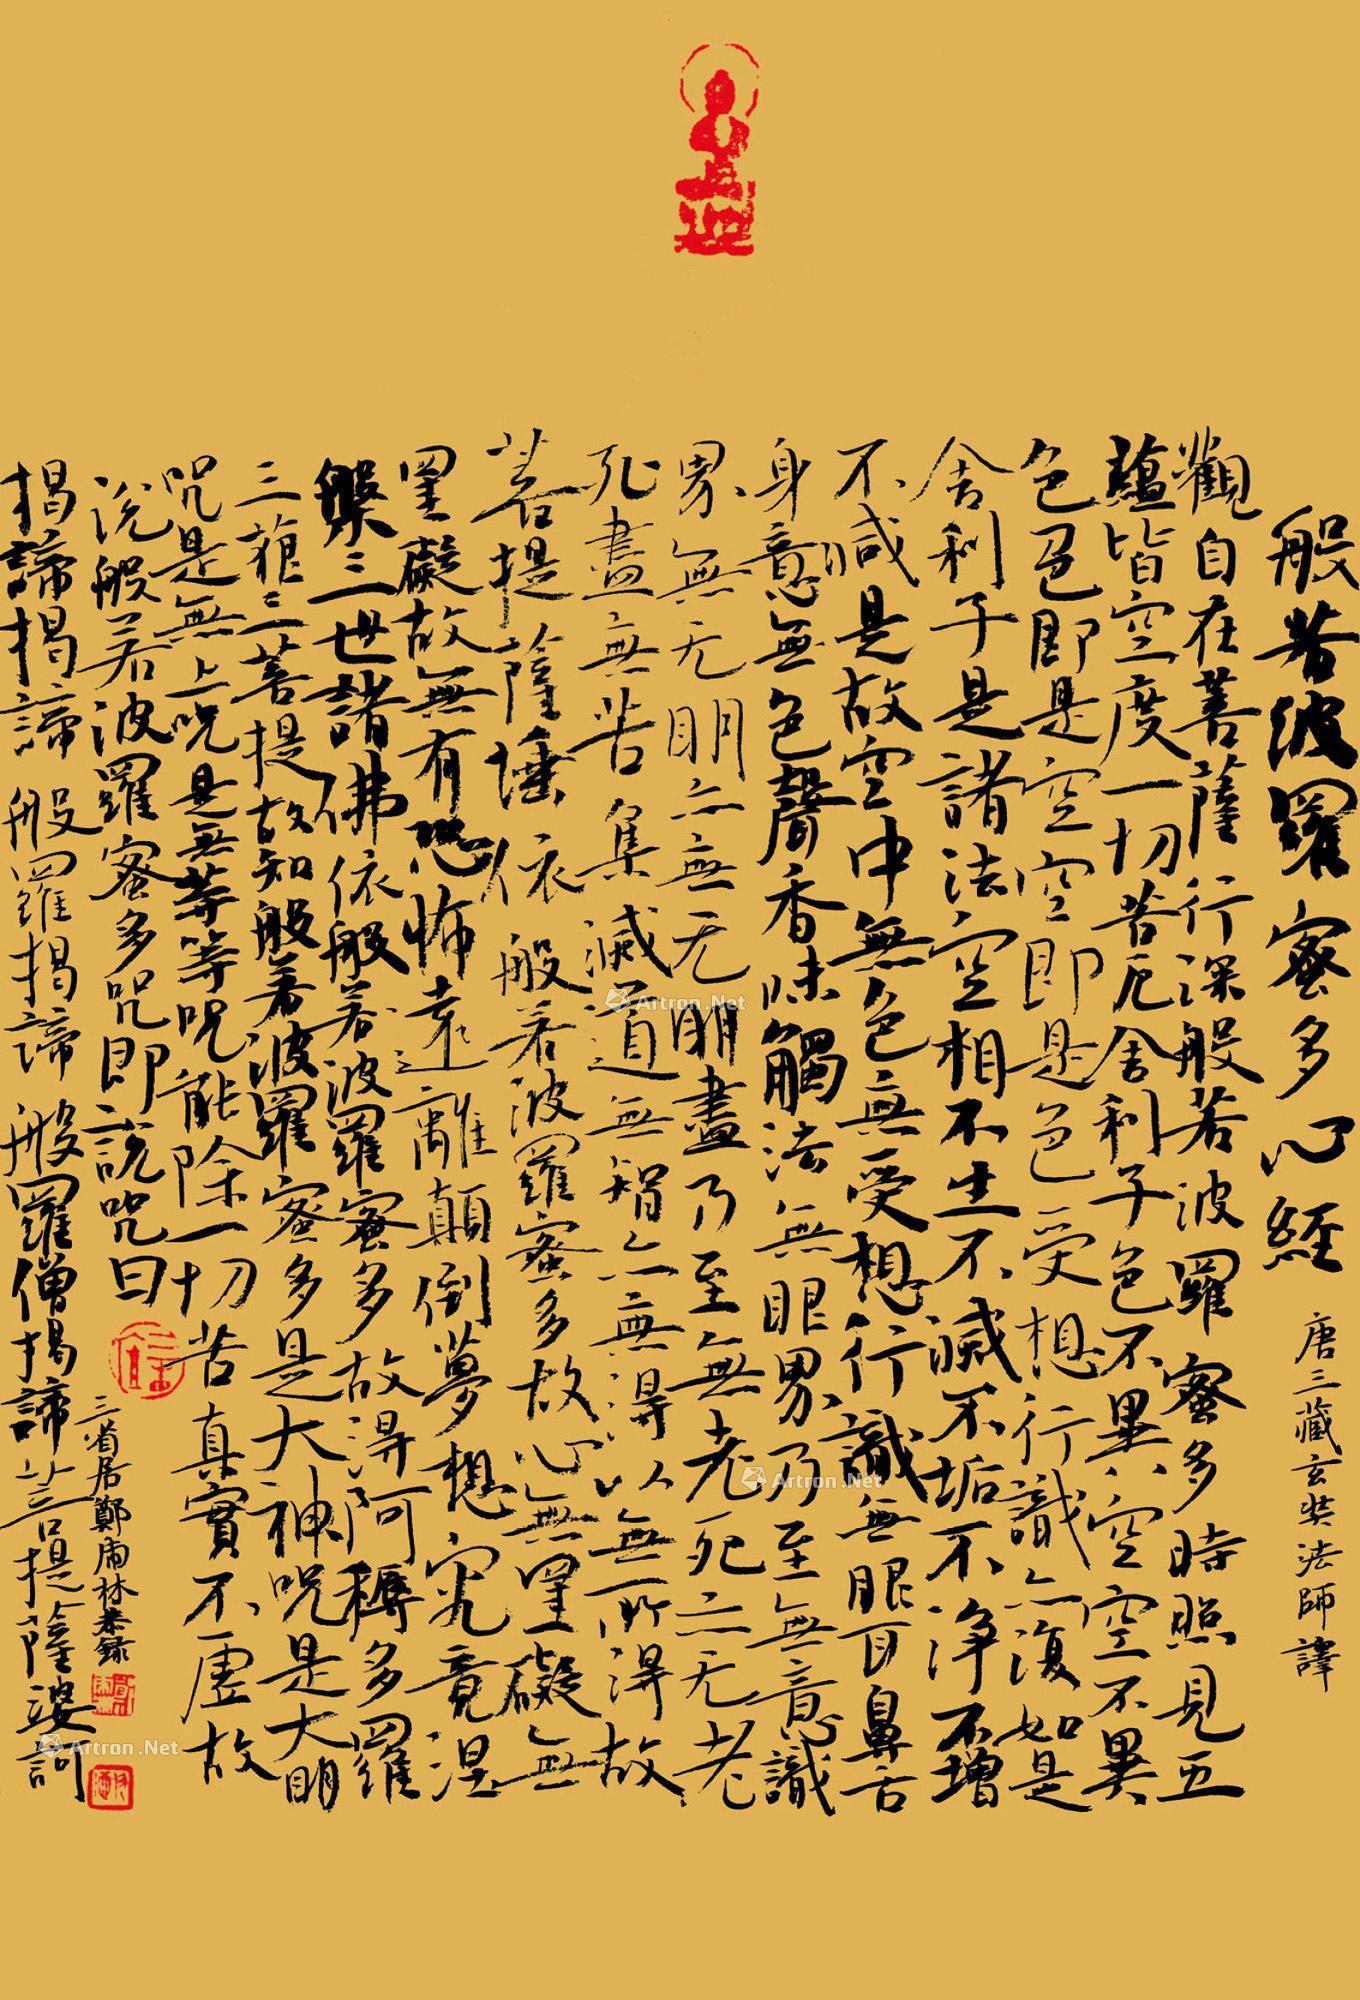 般若波羅蜜多心經
唐三藏玄奘法師譯
觀自在菩薩行深般若波羅蜜多時照見五
蘊皆空度一切苦厄舍利子色不異空空不異
色色即是空空即是色受想行識亦復如是
舍利子是諸法空相不生不滅不垢不淨不增
不減是故空中無色無受想行識無眼耳鼻舌
身意無色聲香味觸法無眼界乃至無意識
界無无明亦無无明盡乃至無老死亦无老
死盡無苦集滅道無智亦無得以無所得故
菩提薩埵依般若波羅蜜多故心無罣礙無
罣礙故無有恐怖遠離顛倒夢想究竟涅
槃三世諸佛依般若波羅蜜多故得阿耨多羅
三藐三菩提故知般若波羅蜜多是大神咒是大明
咒是無上咒是無等等咒能除一切苦真實不虛故
說般若波羅蜜多咒即說咒曰
三省居鄭南林恭錄
揭諦揭諦般羅揭諦般羅僧揭諦菩提薩婆訶
Artron.Net
Artron.Net
Artron.Net